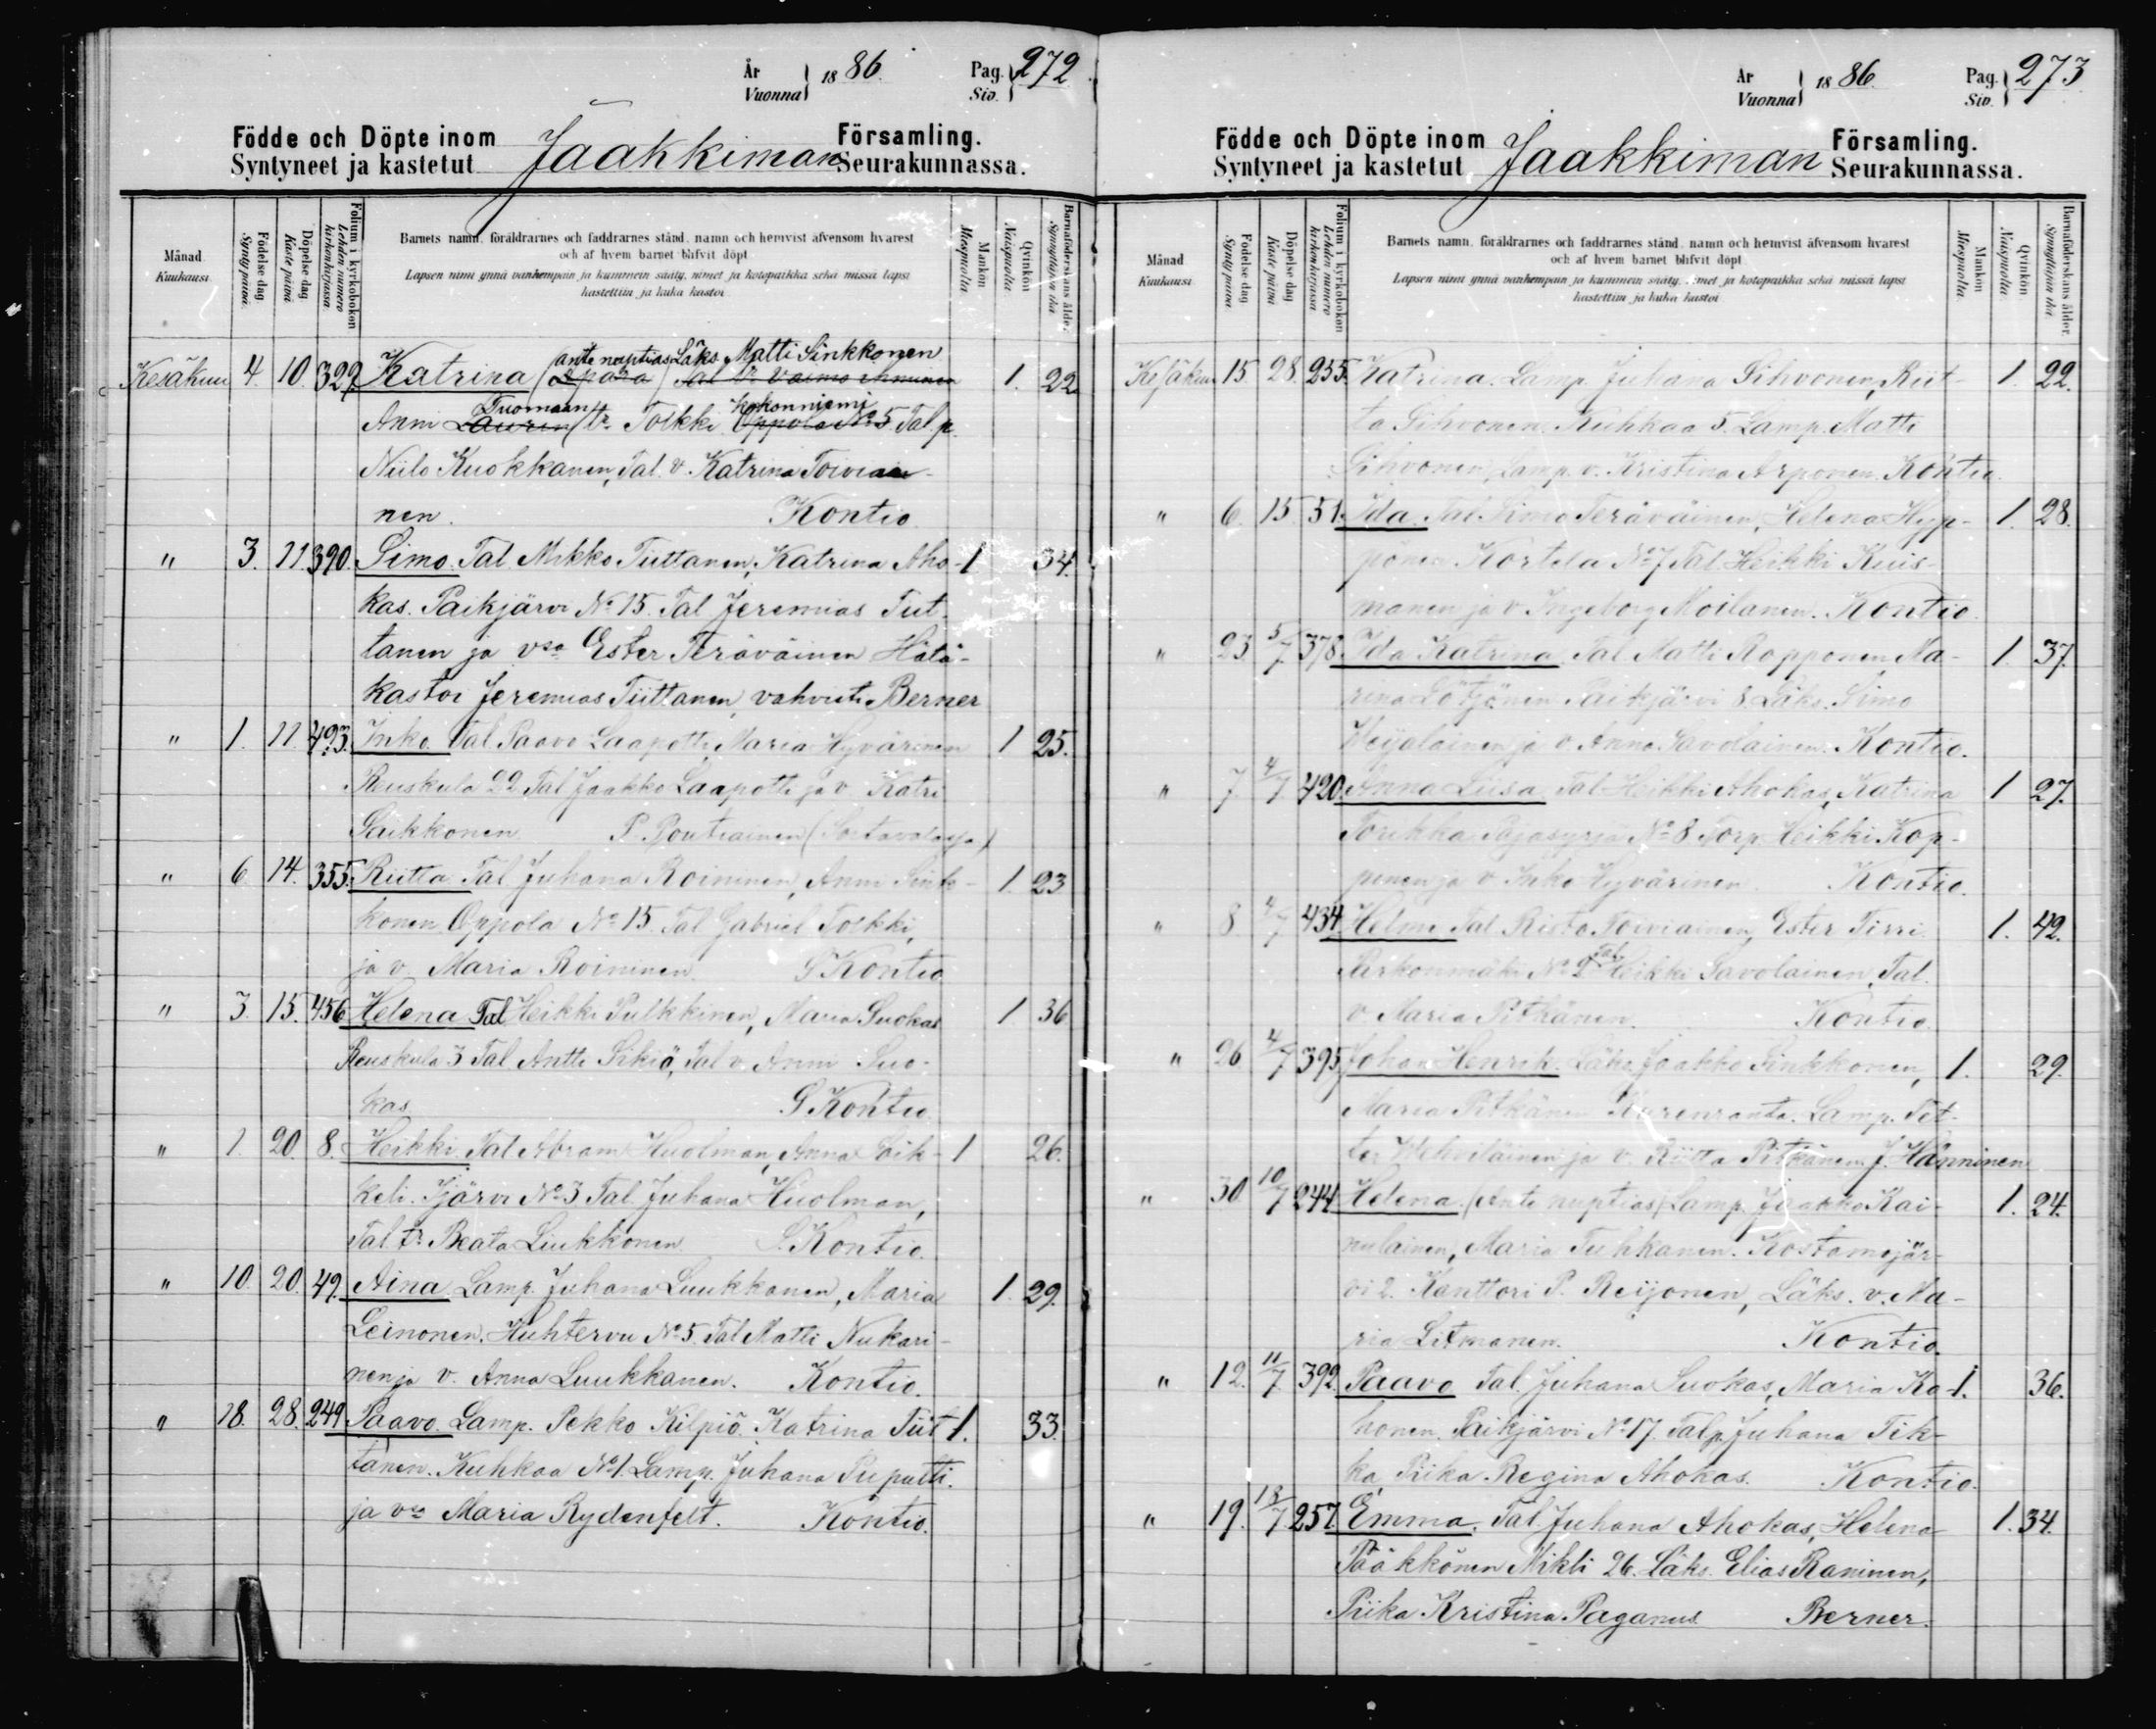 År
Vuonna } 1886. Pag. Siv. } 272.
Födde och Döpte inom Jaakkiman Församling.
Syntyneet ja kastetut Seurakunnassa.
Månad Kuukausi
Födelse dag Synty päivä.
Döpelse dag Kaste päivä
Folium i kyrkobokon Lehden numero kirkonkirjassa.
Barnets namn, föräldrarnes och faddrarnes stånd, namn och hemvist äfvensom hvarest
och af hvem barnet blifvit döpt
Lapsen nimi ynnä vanhempain ja kummein sääty, nimet ja kotopaikka sekä missä lapsi
kastettiin ja kuka kastoi
Mankön Miespuolta
Qvinkön Naispuolta.
Barnaföderskans ålder. Synnyttäjän ikä
ante nuptias Läks Matti Sinkkonen
Kesäkuu 4. 10. 327. Katrina 1. 22
Tuomaan Kokonniemi
Anni Lauren tr. Tolkki Oppola No 5 Tal.p.
Niilo Kuokkanen, Tal. v. Katrina Toiviai-
nen. Kontio
" 3. 11. 390. Simo. Tal. Mikko Tiittanen, Katrina Aho- 1 34.
kas. Paikjärvi No 15. Tal Jeremias Tiit-
tanen ja vso Ester Teräväinen Hätä-
kastoi Jeremias Tiittanen, vahvisti Berner
" 1. 11. 493. Inko. Tal. Paavo Laapotti, Maria Hyvärinen 1 25.
Reuskula 22 Tal Jaakko Laapotti ja v. Katri
Saikkonen P. Poutiainen (Sortavalassa)
" 6. 14. 355. Riitta. Tal Juhana Roininen, Anni Sink- 1. 23
konen Oppola No 15. Tal Gabriel Tolkki,
ja v. Maria Roininen. G Kontio
" 3. 15. 456 Helena Tal Heikki Pulkkinen, Maria Suokas 1 36
Reuskula 3 Tal Antti Sikiö, Tal v. Anni Suo-
kas G Kontio.
" 1. 20. 8. Heikki. Tal Abram Huolman, Anna Loik- 1 26.
keli. Ijärvi No 3 Tal. Juhana Huolman,
Tal. tr. Beata Liukkonen G. Kontio.
" 10. 20. 49. Aina. Lamp. Juhana Luukkanen, Maria 1. 29.
Leinonen. Huhtervu No 5. Tal Matti Nukari-
nen ja v. Anna Luukkanen. Kontio.
" 18. 28. 249 Paavo. Lamp. Pekko Kilpiö. Katrina Tiit 1. 33.
tanen. Kuhkaa No 1. Lamp. Juhana Puputti.
ja vso Maria Rydenfelt. Kontio.
År
Vuonna } 1886. Pag. Siv. } 273
Födde och Döpte inom Jaakkiman Församling.
Syntyneet ja kastetut Seurakunnassa.
Månad Kuukausi
Födelse dag Synty päivä
Döpelse dag Kaste päivä
Folium i kyrkobokon Lehden numero kirkonkirjassa
Barnets namn, föräldrarnes och faddrarnes stånd, namn och hemvist äfvensom hvarest
och af hvem barnet blifvit döpt
Lapsen nimi ynnä vanhempain ja kummein sääty, nimet ja kotopaikka sekä missä lapsi
kastettiin ja kuka kastoi
Mankön Miespuolta
Qvinkön Naispuolta
Barnaföderskans ålder. Synnyttäjän ikä
Kesäkuu 15. 28. 255. Katrina. Lamp. Juhana Sihvonen, Riit- 1. 22.
ta Sihvonen Kuhkaa 5. Lamp. Matti
Sihvonen, Lamp. v. Kristina Arponen. Kontio
" 6. 15. 51. Ida. Tal. Simo Teräväinen, Helena Hyp- 1. 28.
pönen Kortela No 7 Tal. Heikki Kuis-
manen ja v. Ingeborg Moilanen. Kontio.
" 23 5/7. 378 Ida Katrina. Tal. Matti Ropponen Ma- 1. 37.
rina Lötjönen Paikjärvi 8 Läks. Simo
Weijalainen ja v. Anna Savolainen. Kontio.
" 7. 4/7. 420. Anna Liisa. Tal Heikki Ahokas, Katrina 1 27.
Torikka Pajasyrjä No 8 Torp. Heikki Kop-
ponen ja v. Inko Hyvärinen. Kontio.
" 8. 4/7 434. Helmi Tal. Risto Toiviainen, Ester Tirri 1. 42.
Parkonmäki No 2 Tal. Heikki Savolainen, Tal.
v. Maria Pitkänen. Kontio
" 26 4/7 395 Johan Henrik. Läks. Jaakko Sinkkonen, 1. 29.
Maria Pitkänen Kurenranta. Lamp. Pet-
ter Wehviläinen ja v. Riitta Pitkänen. J. Hänninen
" 30. 10/7 244 Helena. (Ante nuptias) Lamp. Jaakko Kai- 1. 24.
nulainen, Maria Tuhkanen. Kostamojär-
vi 2. Kanttori P. Reijonen, Läks. v. Ma-
ria Litmanen. Kontio.
" 12. 11/7. 392. Paavo Tal. Juhana Suokas, Maria Ko- 1. 36.
honen. Paikjärvi No 17. Tal.p. Juhana Tik-
ka, Piika Regina Ahokas. Kontio.
" 19. 18/7 257. Emma. Tal. Juhana Ahokas, Helena 1. 34.
Pääkkönen Mikli 26. Läks. Elias Raninen,
Piika Kristina Paganus Berner.